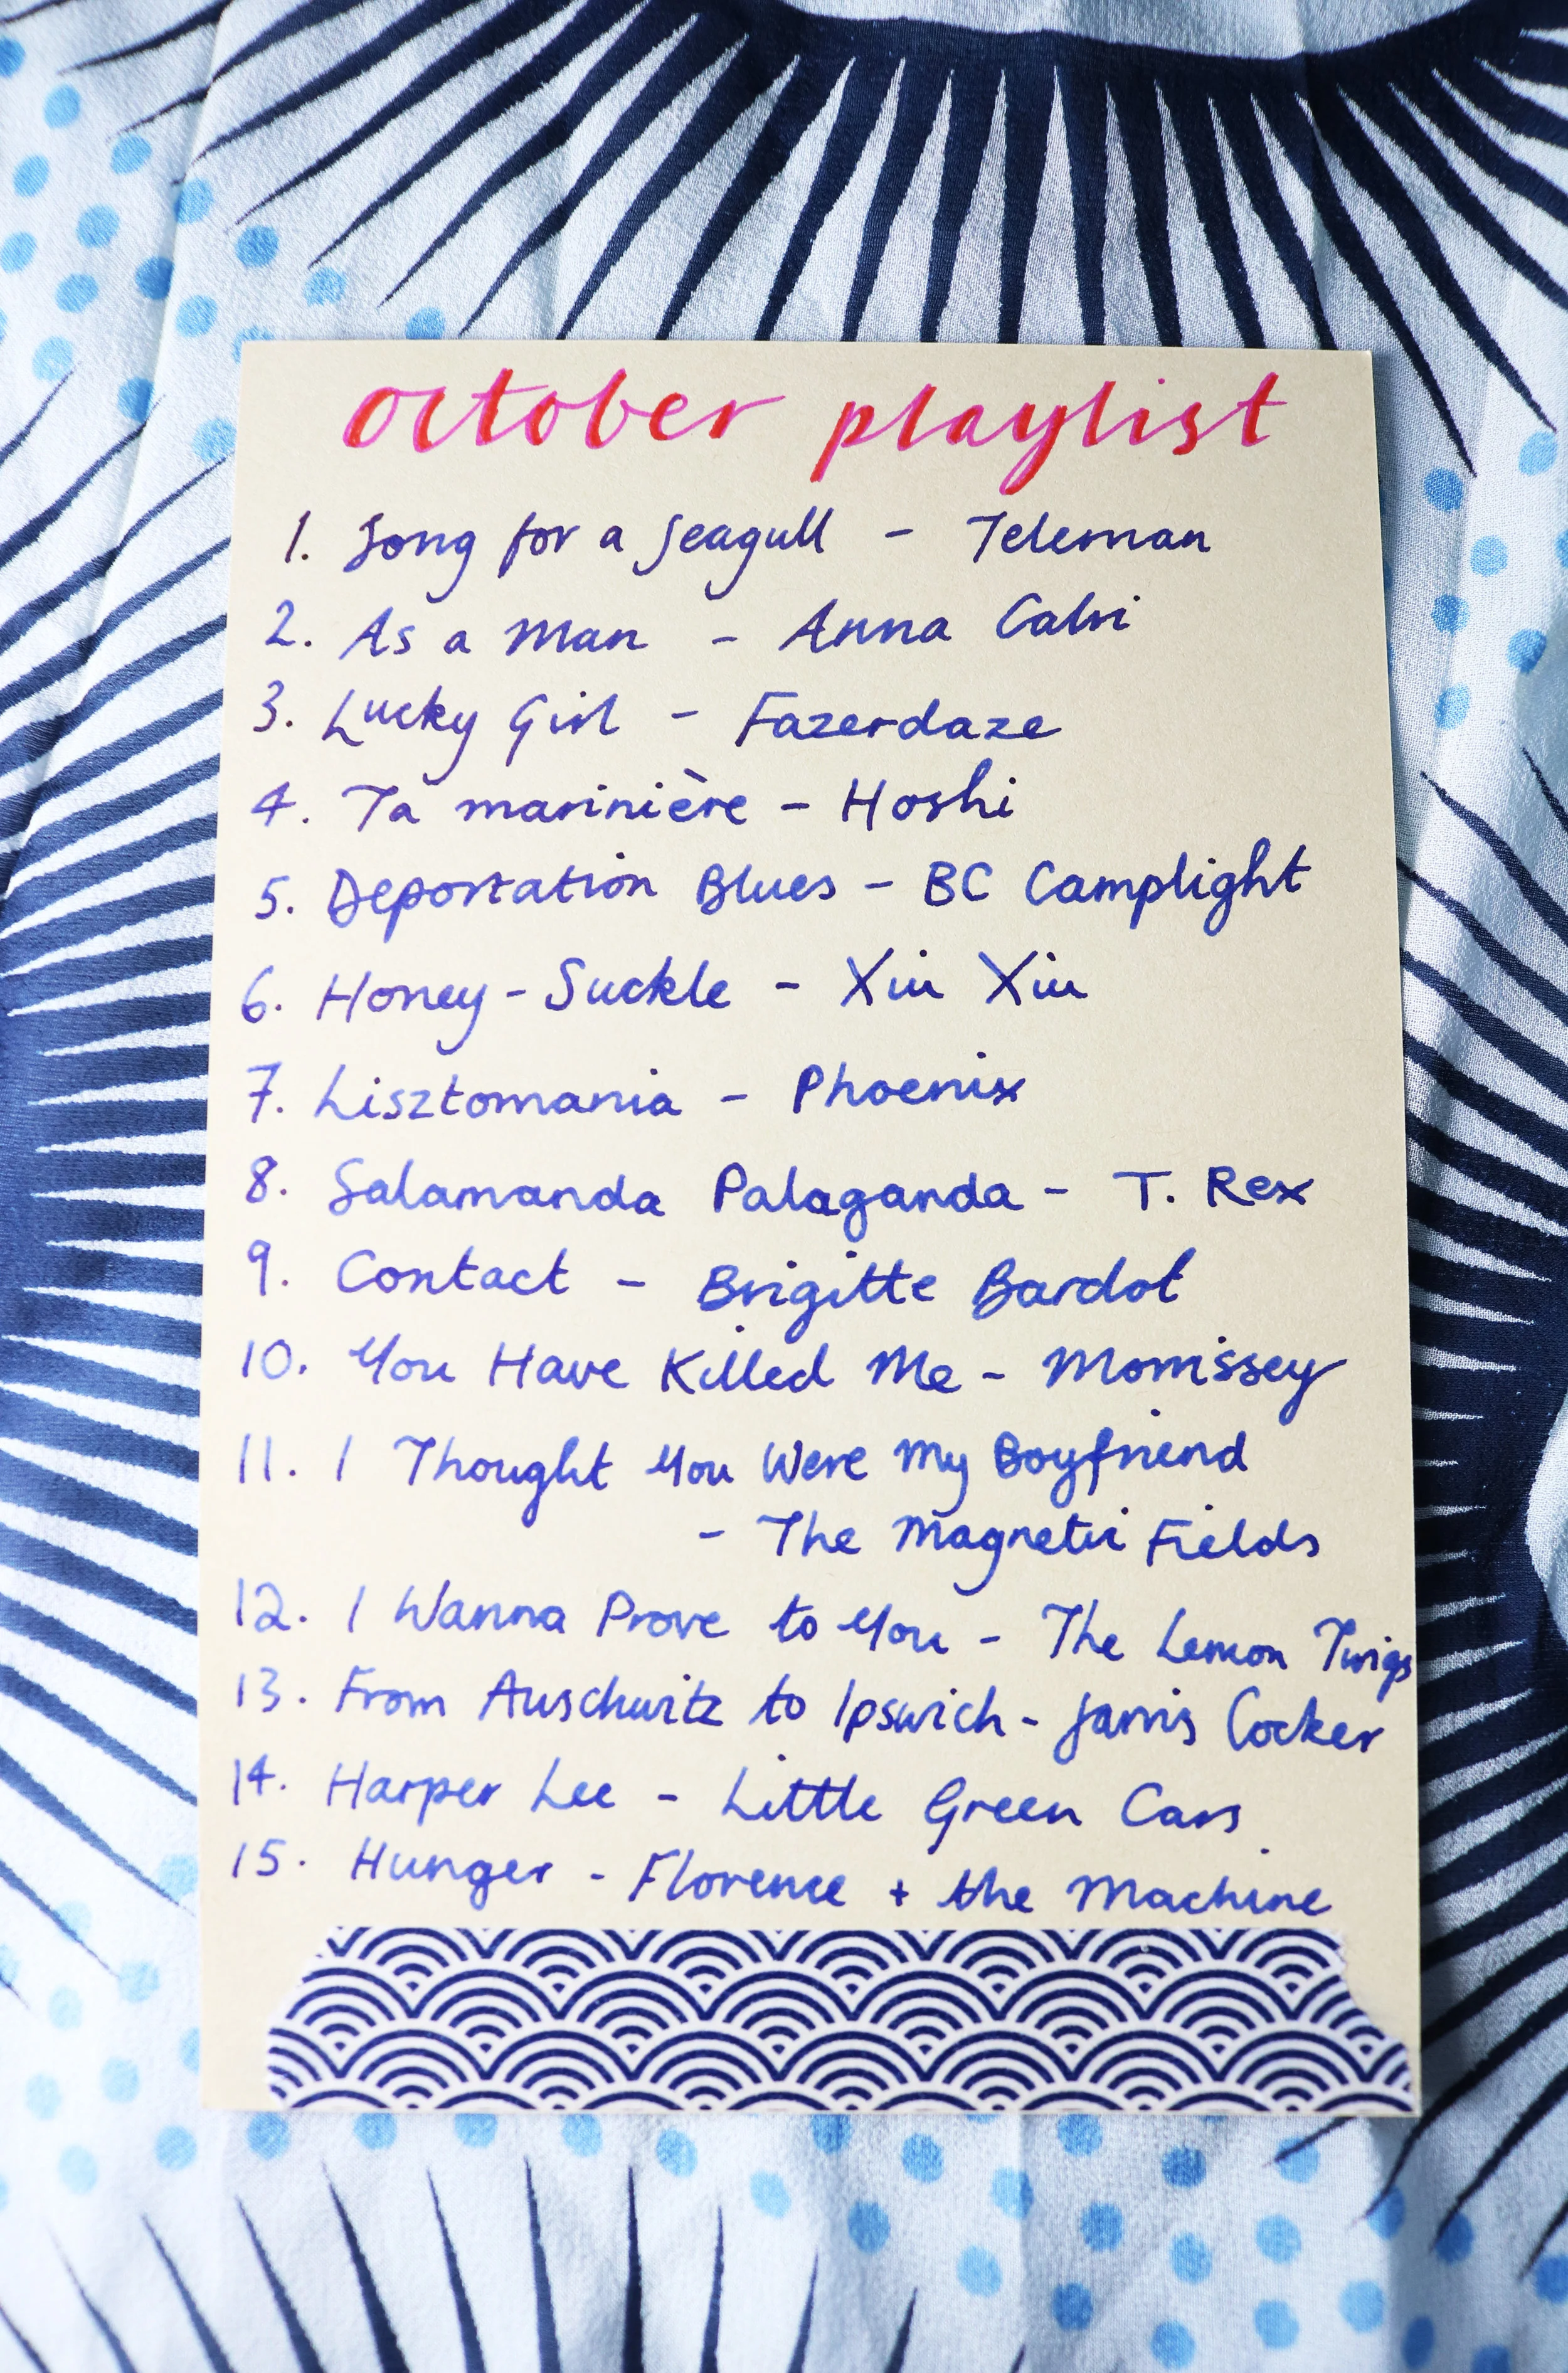 october playlist
1. Song for a Seagull - Teleman
2. As a Man - Anna Calvi
3. Lucky Girl - Fazerdaze
4. Ta marinière - Hoshi
5. Deportation Blues - BC Camplight
6. Honey-Suckle - Xiu Xiu
7. Lisztomania - Phoenix
8. Salamanda Palaganda - T. Rex
9. Contact - Brigitte Bardot
10. You Have Killed Me - Morrissey
11. I Thought You Were My Boyfriend
- The Magnetic Fields
12. I Wanna Prove to You - The Lemon Twigs
13. From Auschwitz to Ipswich - Jarvis Cocker
14. Harper Lee - Little Green Cars
15. Hunger - Florence + the Machine